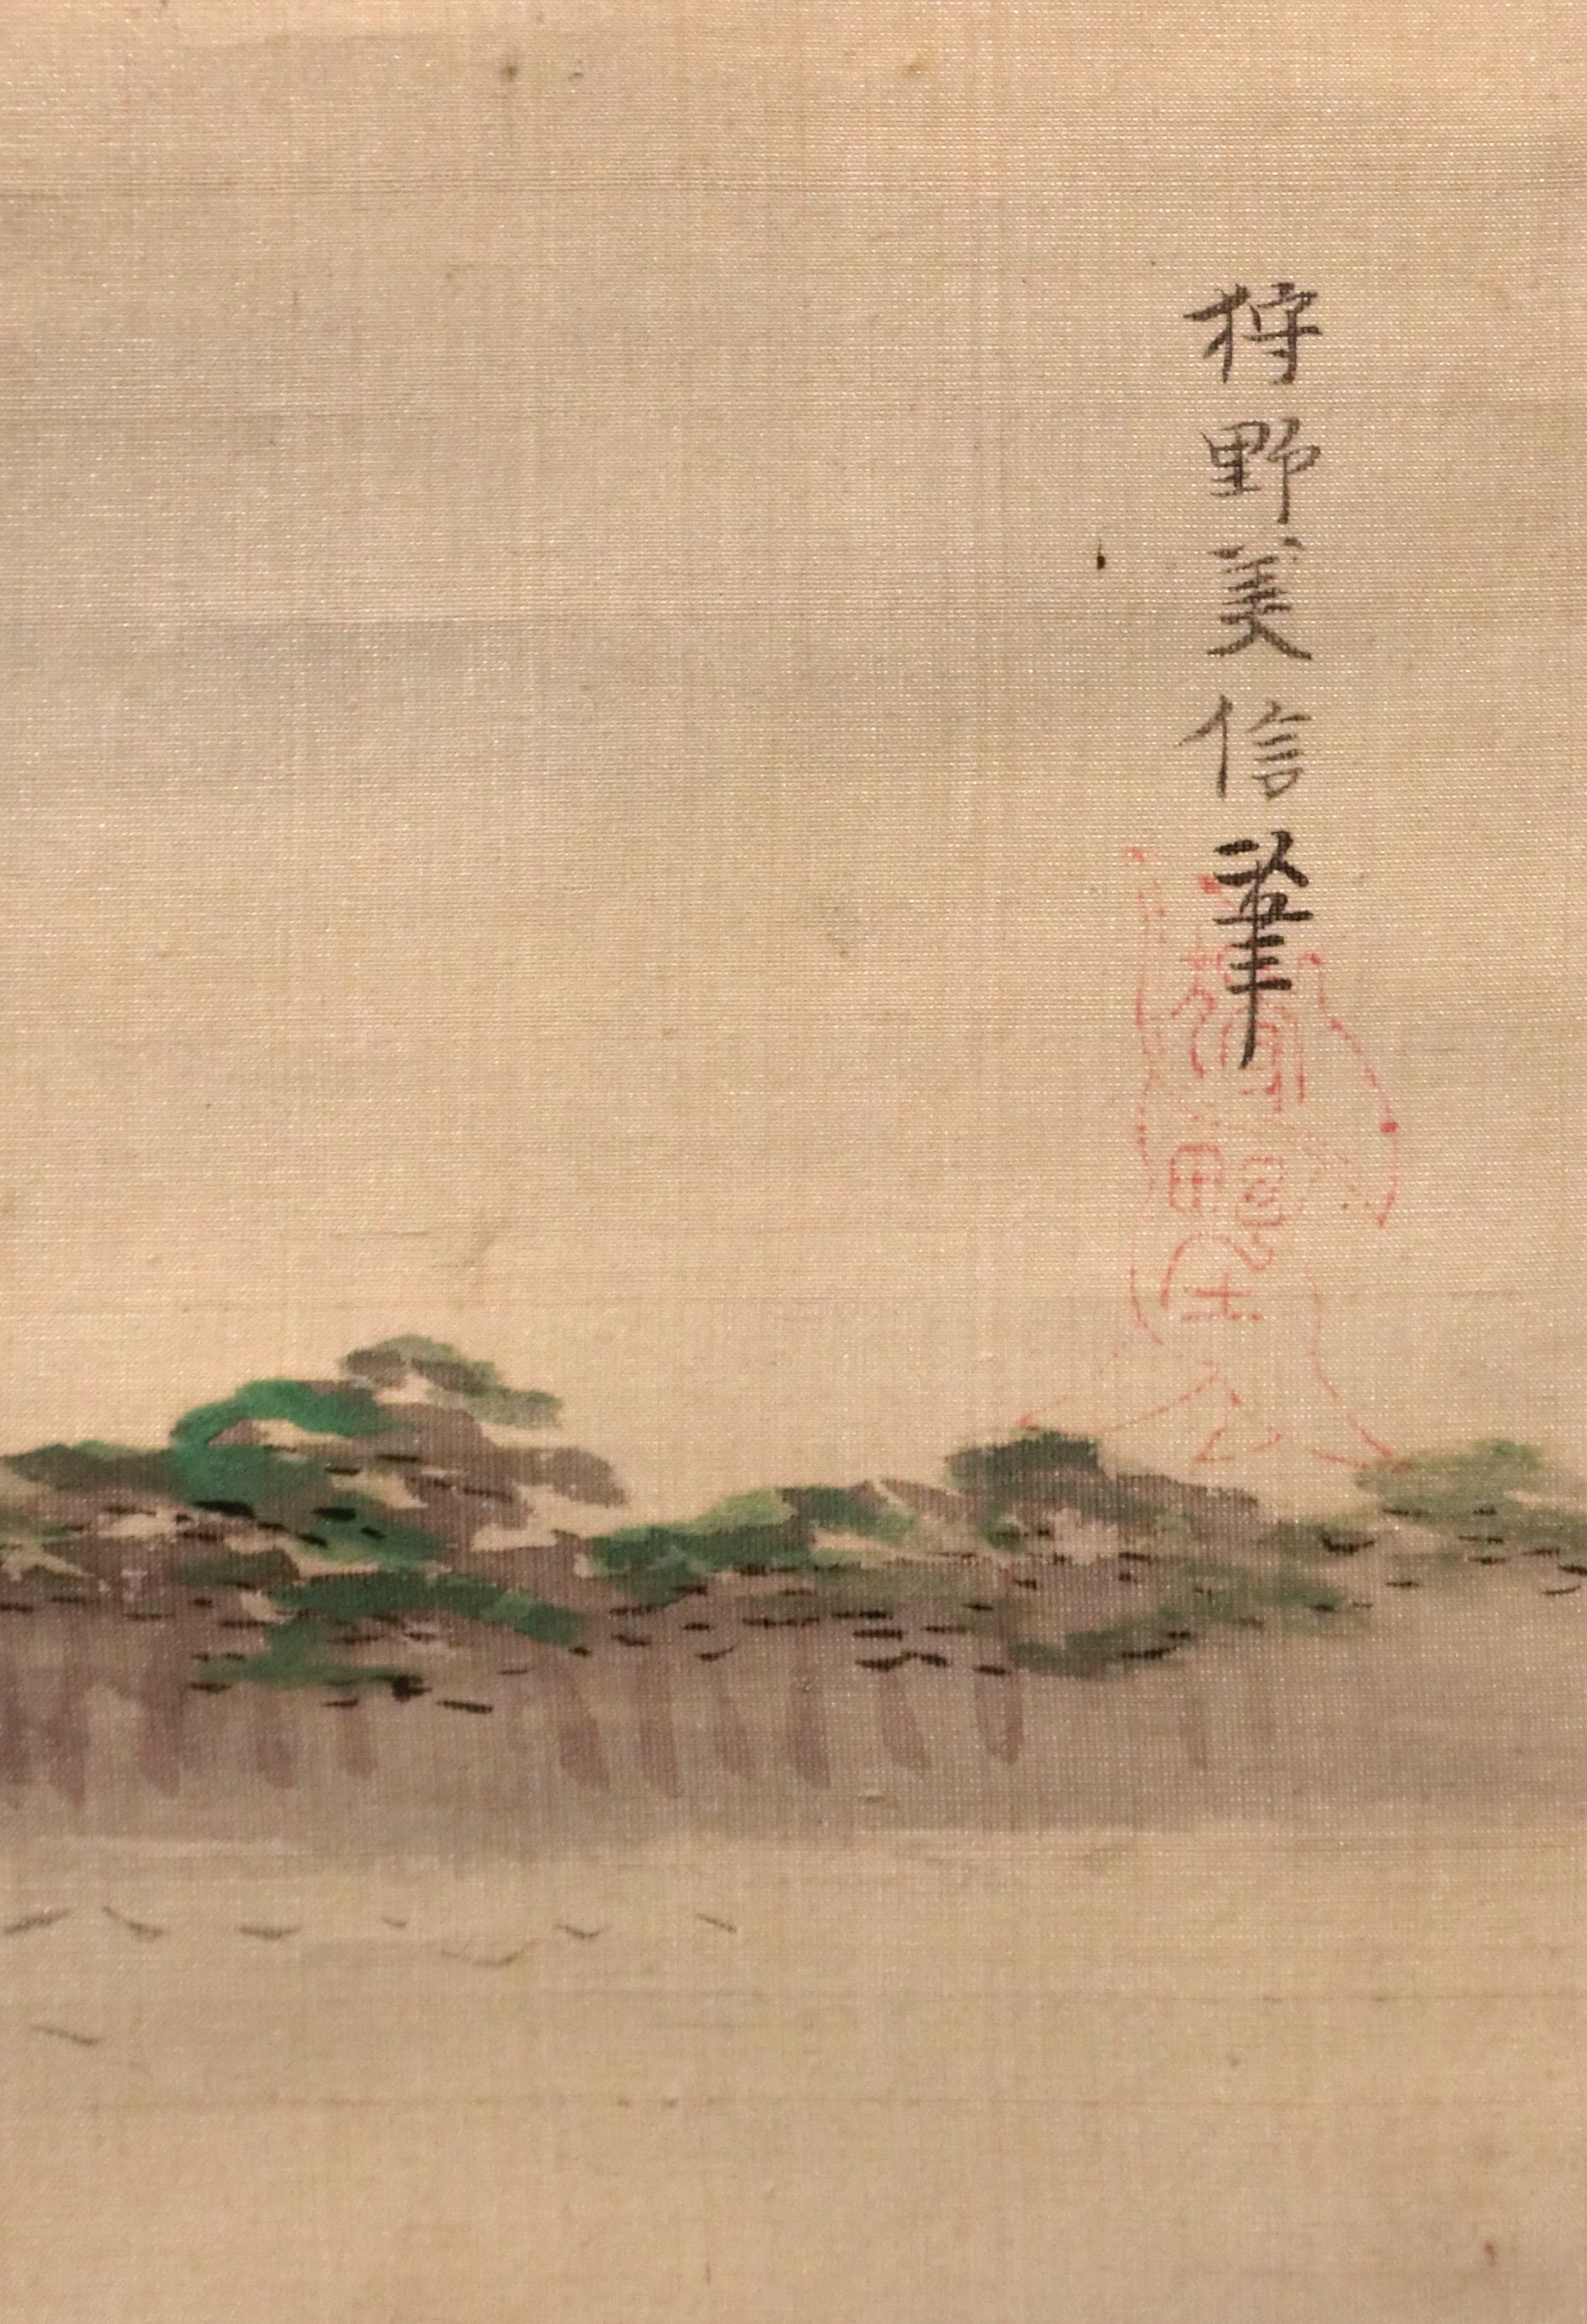 狩野美信筆